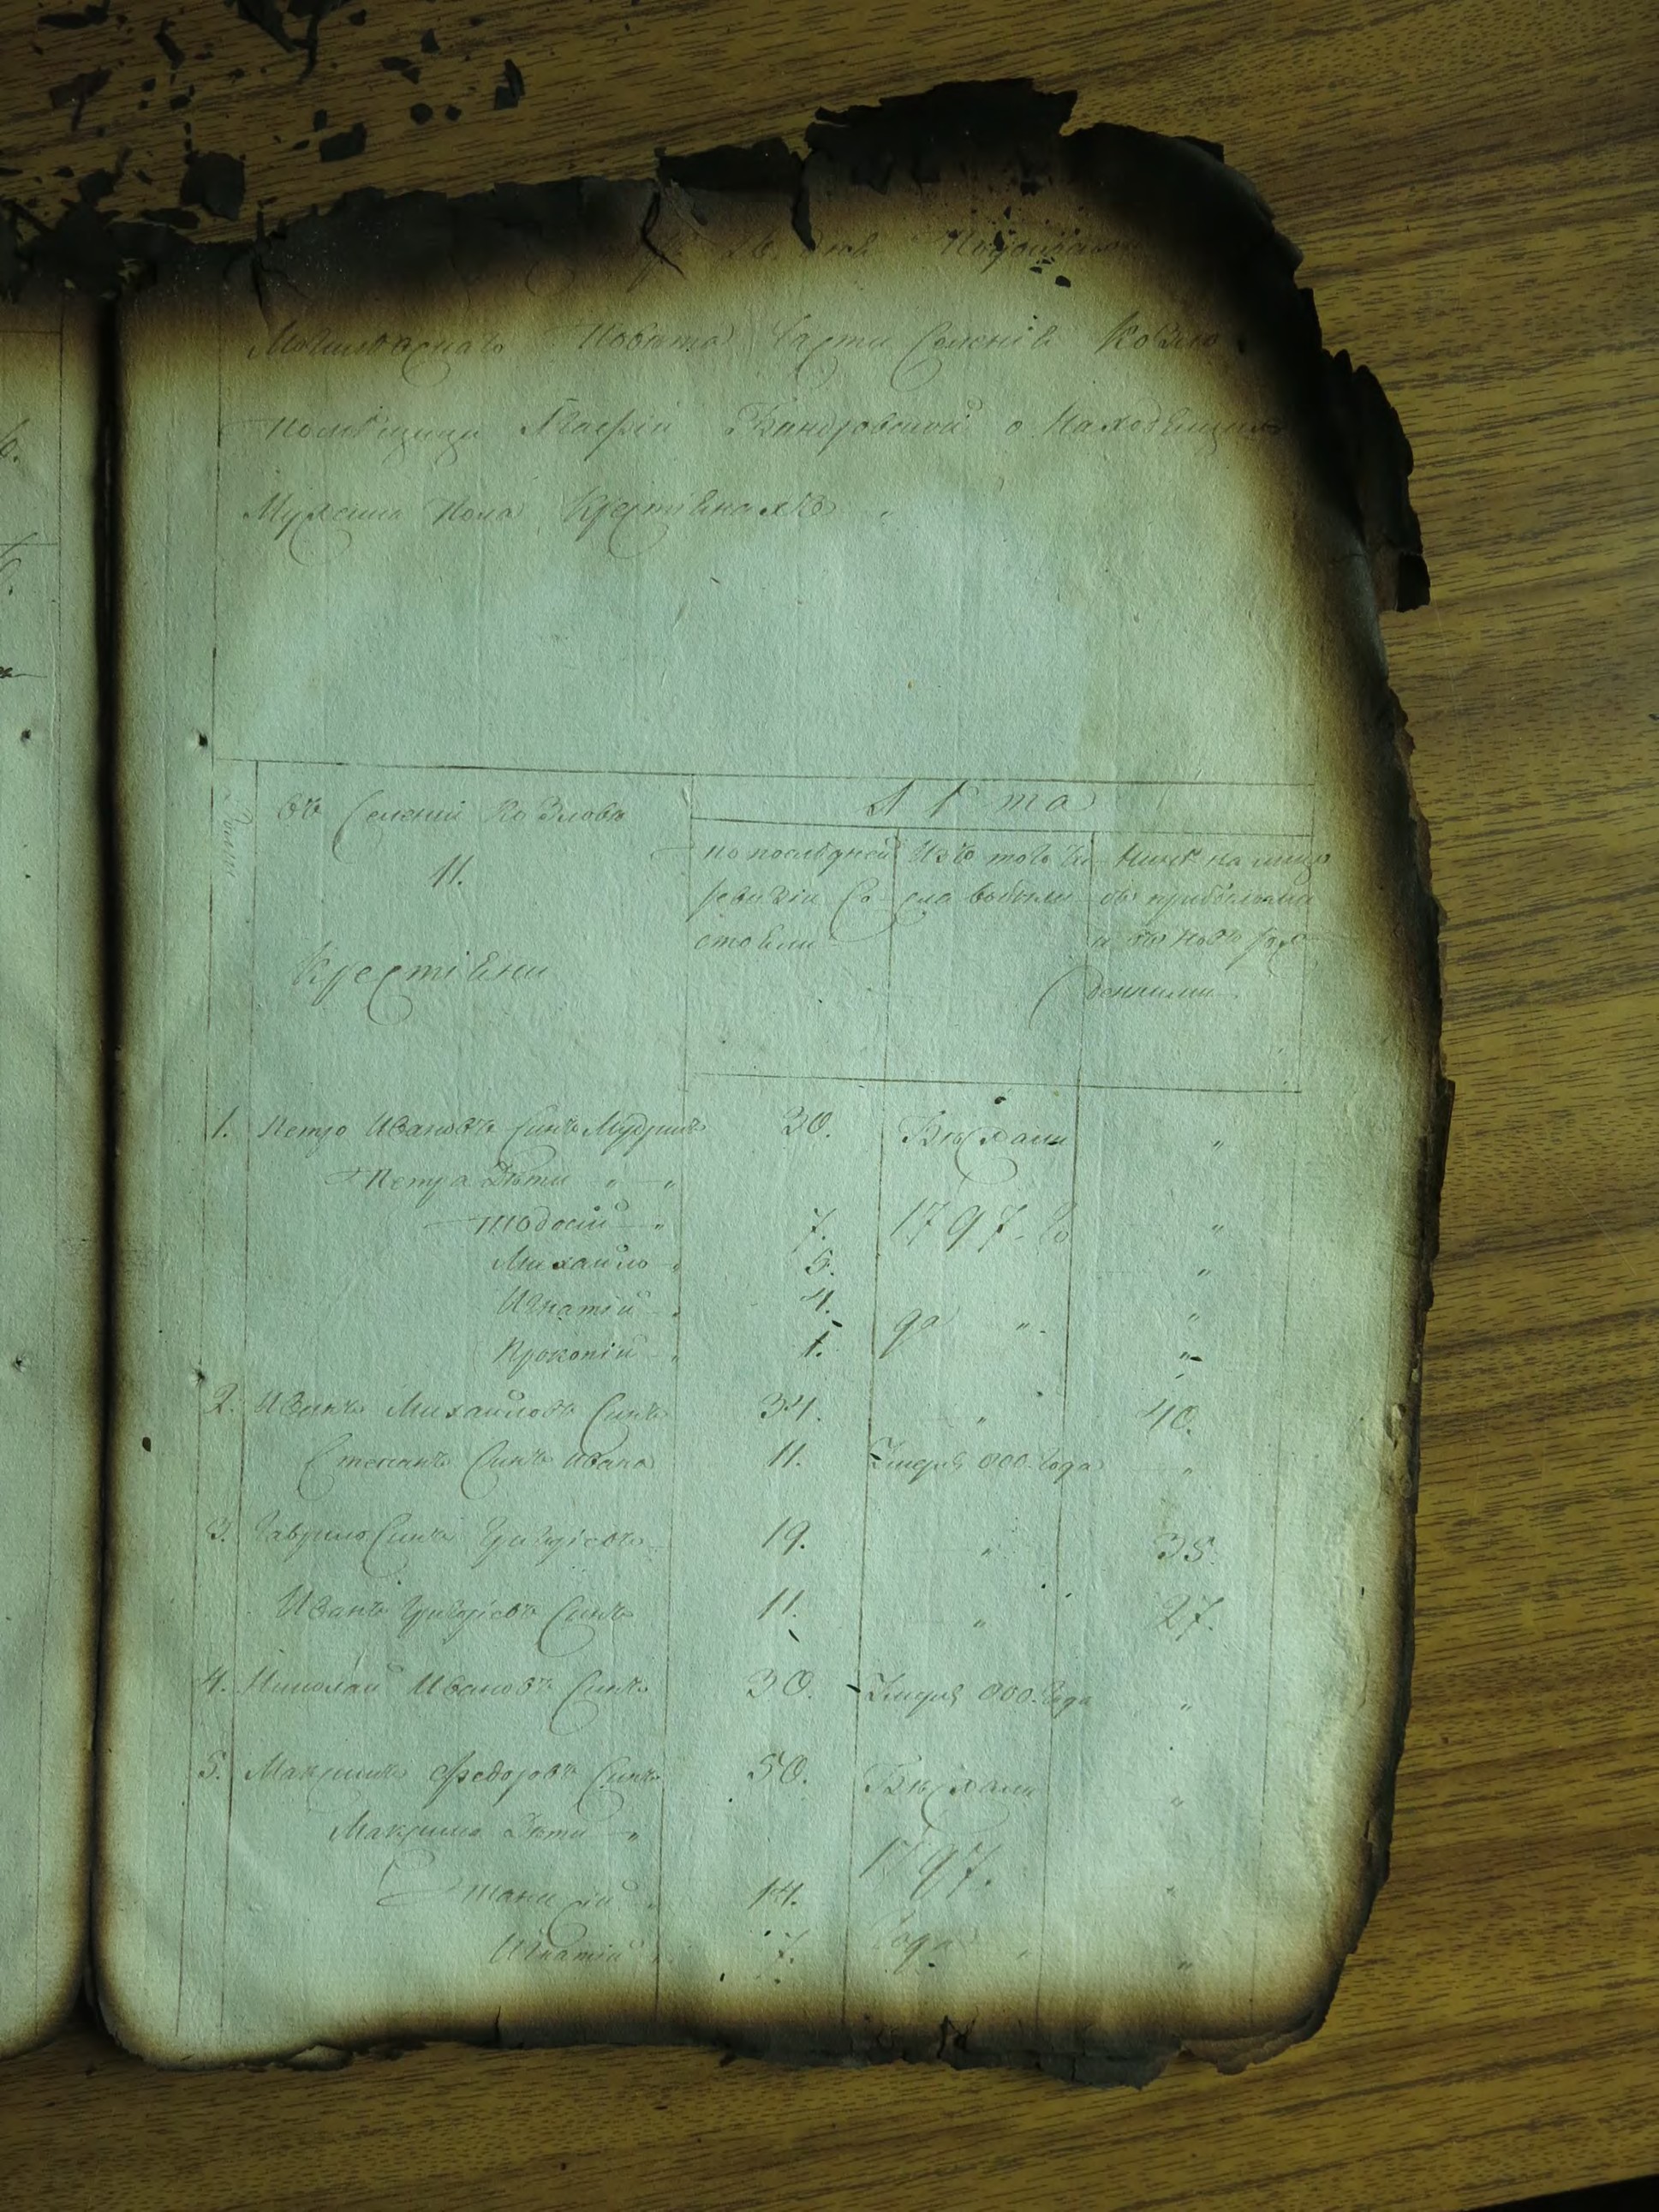 Повета Части Селенія Козло
Помѣщици Бандровской о Находящихся
Мужеска Пола Крестіянахъ
Въ Селеніи Козловѣ
11.
Крестіяни
Лѣта
по последней ревизіи состояли
Изъ того числа выбыли
Нинѣ на лицо
съ прибылыми
и вновь рож
денними
1. Петро Ивановъ Синъ Мудрикъ 30. Бѣжали „
Петра Дѣти „ „
Тиодосій „ 7. 1797. Го „
Михайло „ 5. „
Игнатій „ 4. да „ „
Прокопій „ 1. „
2. Иванъ Михайловъ Синъ 34. „ 40.
Степанъ Синъ Ивана 11. Умеръ 800. Года „
3. Гаврило Синъ Григоріевъ 19. „ 35.
Иванъ Григоріевъ Синъ 11. „ 27.
4. Николай Ивановъ Синъ 30. Умеръ 800. Года „
5. Максимъ Федоровъ Синъ 50. Бѣжали „
Максима Дѣти „
14. 1797. „
Игнатій „ 7. Года „ „